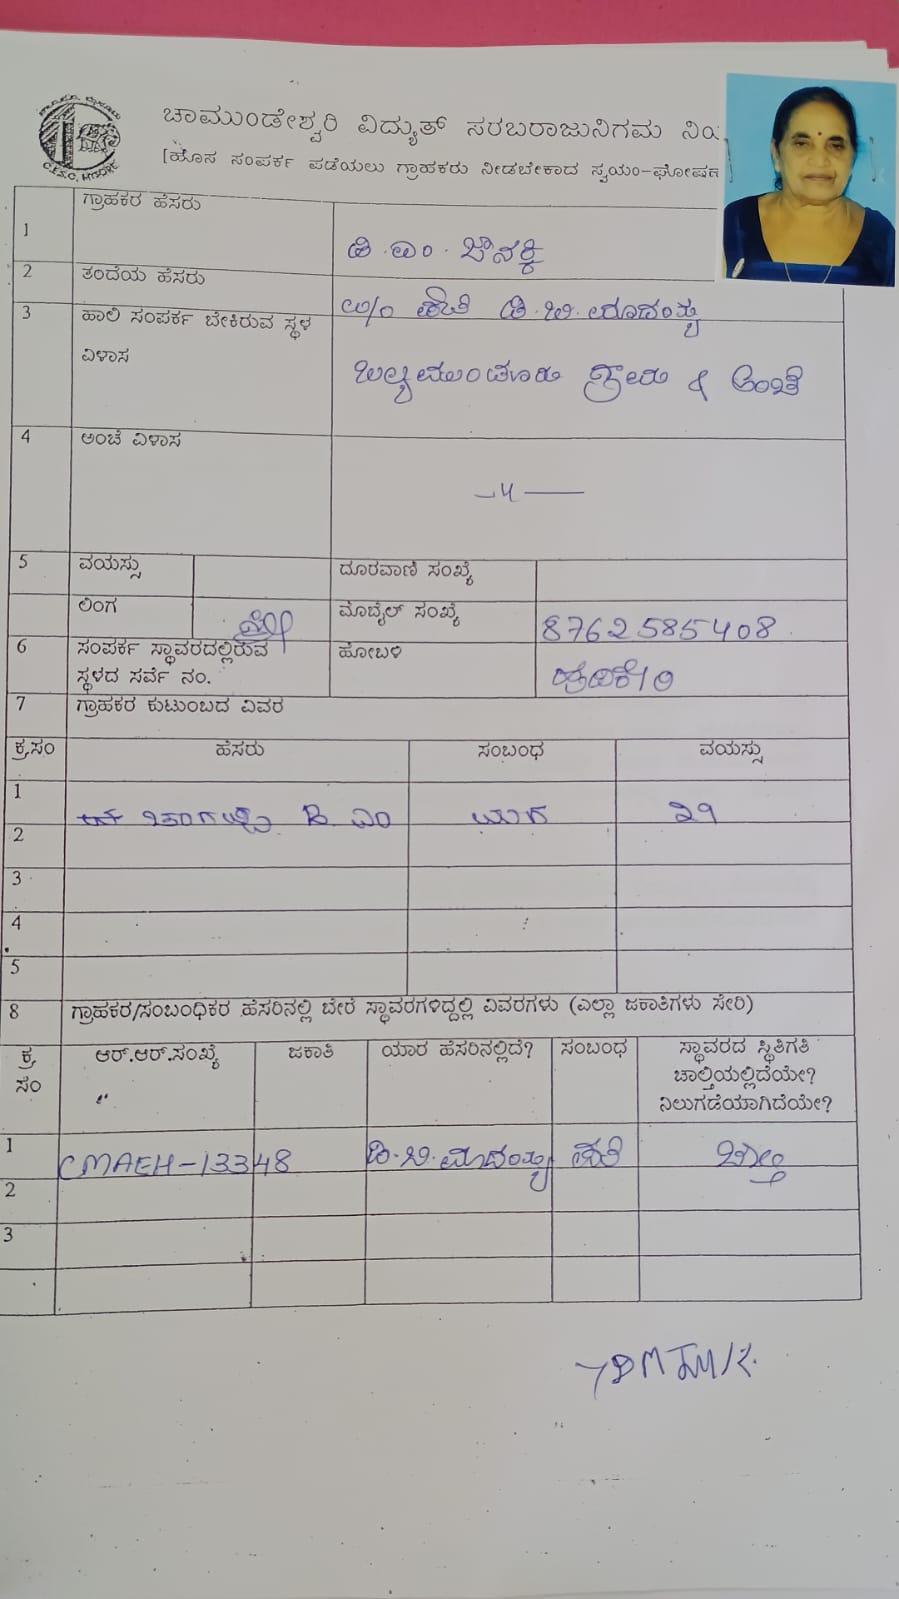 ಚಾಮುಂಡೇಶ್ವರಿ ವಿದ್ಯುತ್ ಸರಬರಾಜುನಿಗಮ
[ಹೊಸ ಸಂಪರ್ಕ ಪಡೆಯಲು ಗ್ರಾಹಕರು ನೀಡಬೇಕಾದ ಸ್ವಯಂ-ಘೋಷಣ
1 ಗ್ರಾಹಕರ ಹೆಸರು ಡಿ.ಎಂ.
2 ತಂದೆಯ ಹೆಸರು
3 ಹಾಲಿ ಸಂಪರ್ಕ ಬೇಕಿರುವ ಸ್ಥಳ
ವಿಳಾಸ & ಅಂಚೆ
4 ಅಂಚೆ ವಿಳಾಸ
5 ವಯಸ್ಸು ದೂರವಾಣಿ ಸಂಖ್ಯೆ
ಲಿಂಗ ಮೊಬೈಲ್ ಸಂಖ್ಯೆ 8762585408
6 ಸಂಪರ್ಕ ಸ್ಥಾವರದಲ್ಲಿರುವ ಹೋಬಳಿ
ಸ್ಥಳದ ಸರ್ವೆ ನಂ.
7 ಗ್ರಾಹಕರ ಕುಟುಂಬದ ವಿವರ
ಕ್ರ.ಸಂ ಹೆಸರು ಸಂಬಂಧ ವಯಸ್ಸು
1 ಮಗ
2
3
4
5
8 ಗ್ರಾಹಕರ/ಸಂಬಂಧಿಕರ ಹೆಸರಿನಲ್ಲಿ ಬೇರೆ ಸ್ಥಾವರಗಳಿದ್ದಲ್ಲಿ ವಿವರಗಳು (ಎಲ್ಲಾ ಜಕಾತಿಗಳು ಸೇರಿ)
ಕ್ರ ಆರ್.ಆರ್.ಸಂಖ್ಯೆ ಜಕಾತಿ ಯಾರ ಹೆಸರಿನಲ್ಲಿದೆ? ಸಂಬಂಧ ಸ್ಥಾವರದ ಸ್ಥಿತಿಗತಿ
ಸಂ ಚಾಲ್ತಿಯಲ್ಲಿದೆಯೇ?
ನಿಲುಗಡೆಯಾಗಿದೆಯೇ?
1 CMAEH-13348 ಡಿ.ಬಿ.ಮಾದಯ್ಯ ಪತಿ ಚಾಲ್ತಿ
2
3